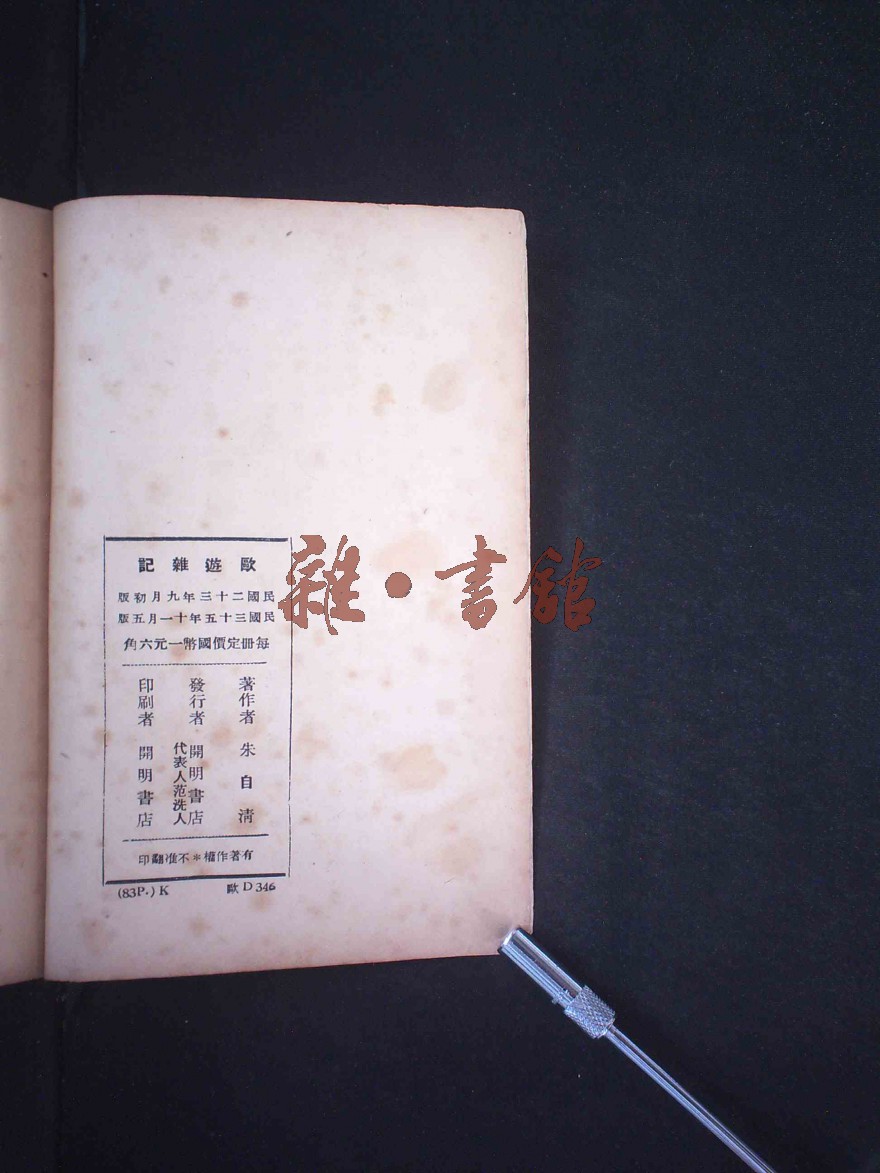 歐遊雜記
民國二十三年九月初版
民國三十五年十一月五版
每冊定價國幣一元六角
著作者 朱自清
發行者 開明書店
代表人范洗人
印刷者 開明書店
有著作權＊不准翻印
(83P.) K 歐 D 346
雜・書館